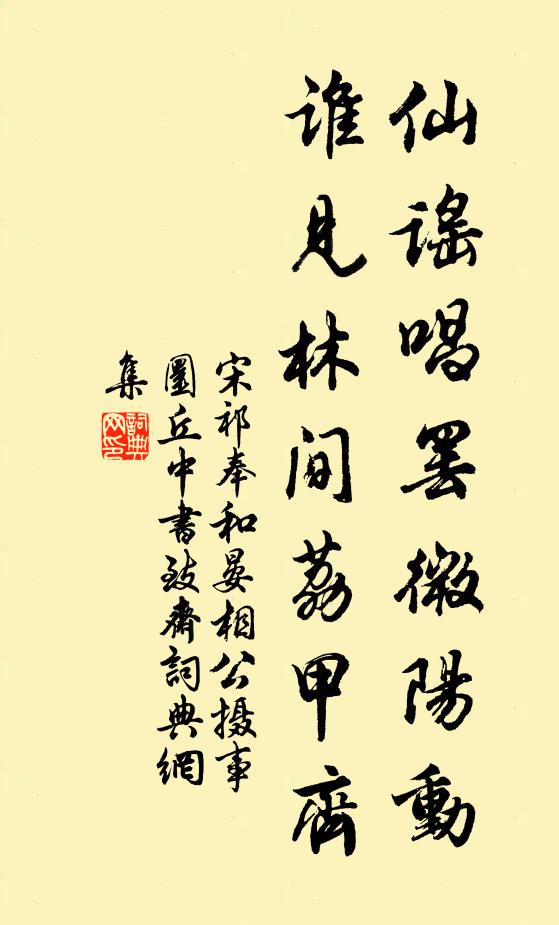 仙謠唱罢微陽動
誰見林間荔甲齊
宋祁奉和晏相公摄事
圜丘中書致齋詞典網
集
詞典網印